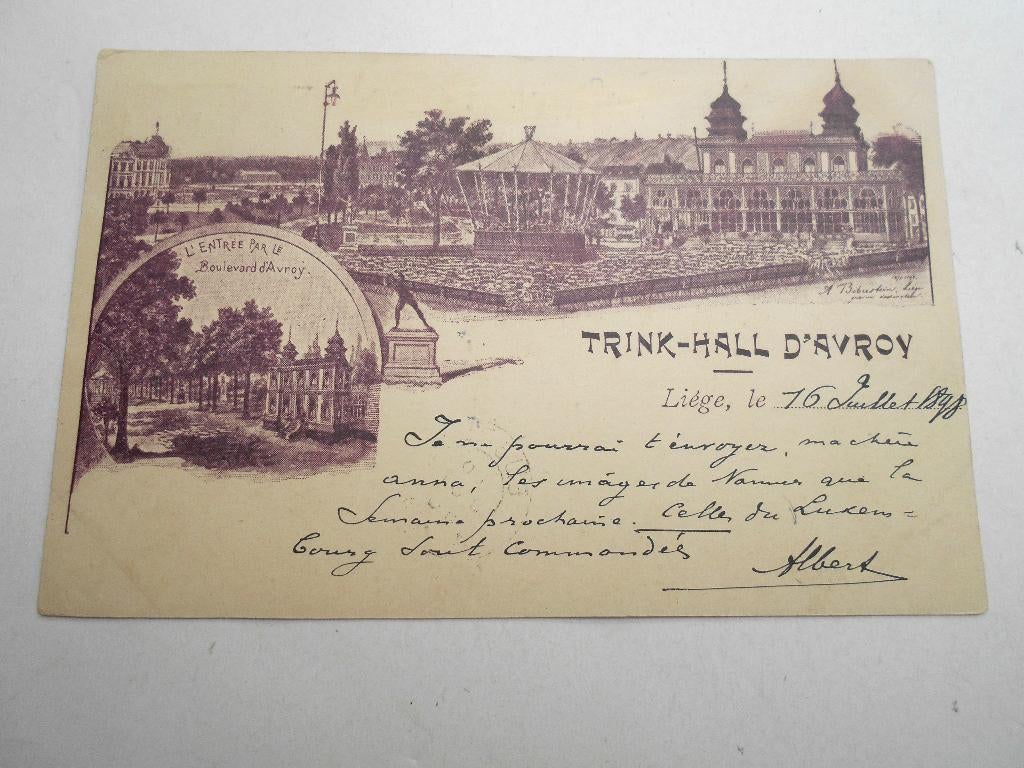 L'ENTRÉE PAR LE
Boulevard d'Avroy.
TRINK-HALL D'AVROY
Liége, le 16 Juillet 1898
Je ne pourrai t'envoyer, ma chère
anna, les images de Namur que la
Semaine prochaine. Celles du Luxem=
bourg sont commandées
Albert